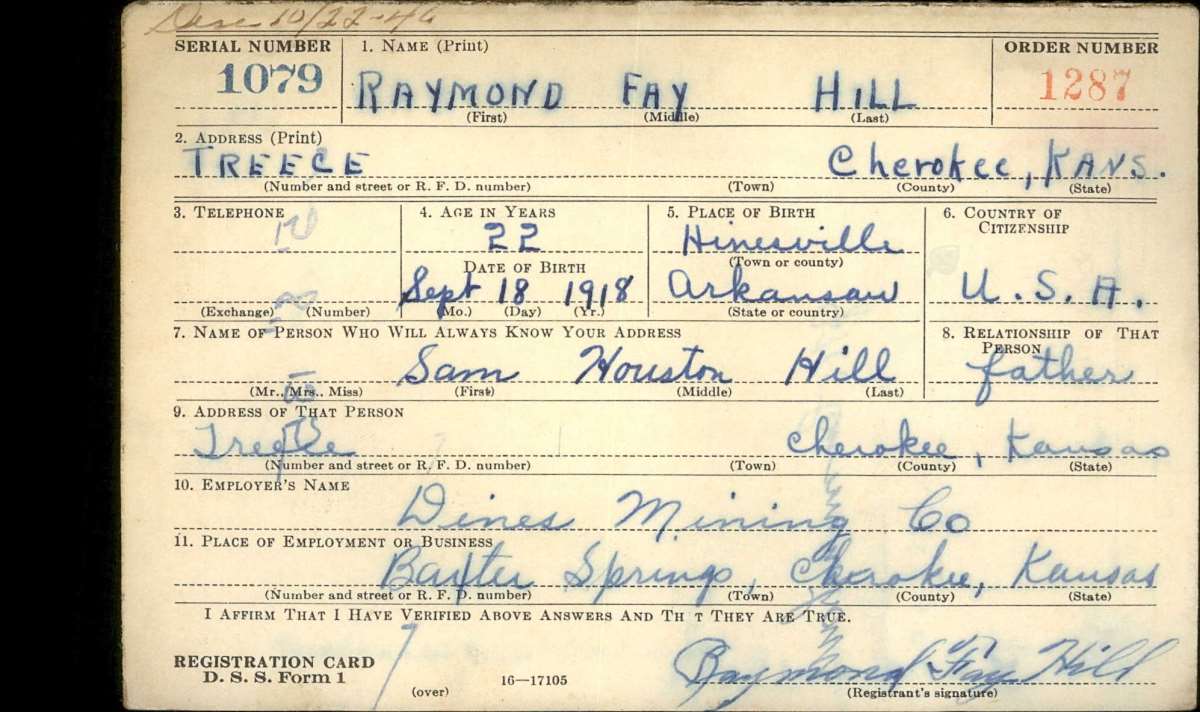 Disc 10/22-46
SERIAL NUMBER 1. NAME (Print) ORDER NUMBER
1079 RAYMOND FAY HILL 1287
(First) (Middle) (Last)
2. ADDRESS (Print)
TREECE Cherokee, KANS.
(Number and street or R. F. D. number) (Town) (County) (State)
3. TELEPHONE 4. AGE IN YEARS 5. PLACE OF BIRTH 6. COUNTRY OF CITIZENSHIP
22 Hinesville
DATE OF BIRTH (Town or county)
Sept 18 1918 Arkansaw U. S. A.
(Exchange) (Number) (Mo.) (Day) (Yr.) (State or country)
7. NAME OF PERSON WHO WILL ALWAYS KNOW YOUR ADDRESS 8. RELATIONSHIP OF THAT PERSON
Sam Houston Hill father
(Mr., Mrs., Miss) (First) (Middle) (Last)
9. ADDRESS OF THAT PERSON
Treece Cherokee, Kansas
(Number and street or R. F. D. number) (Town) (County) (State)
10. EMPLOYER'S NAME
Dines Mining Co
11. PLACE OF EMPLOYMENT OR BUSINESS
Baxter Springs, Cherokee, Kansas
(Number and street or R. F. D. number) (Town) (County) (State)
I AFFIRM THAT I HAVE VERIFIED ABOVE ANSWERS AND TH T THEY ARE TRUE.
REGISTRATION CARD
D. S. S. Form 1 Raymond Fay Hill
(over) 16—17105 (Registrant's signature)